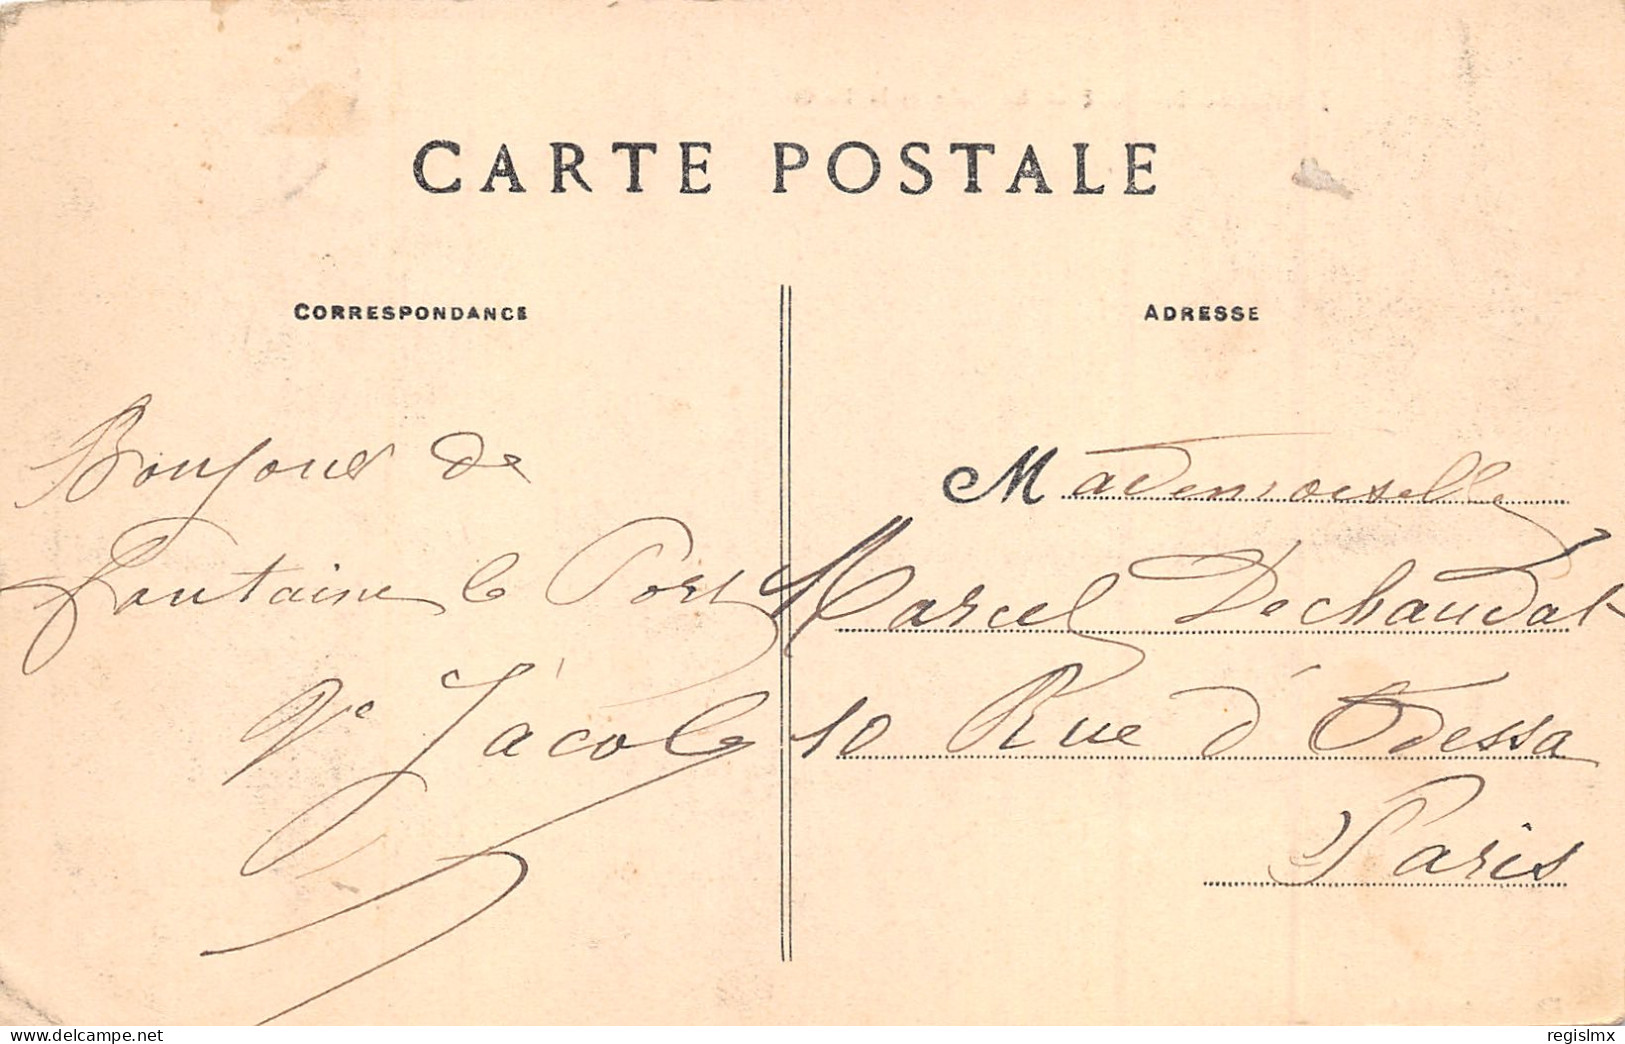 CARTE POSTALE
CORRESPONDANCE
Bonjour de
Fontaine le Port
Ve Jacob
ADRESSE
Mademoiselle
Marcel Dechaudat
10 Rue d'Odessa
Paris
www.delcampe.net
regislmx